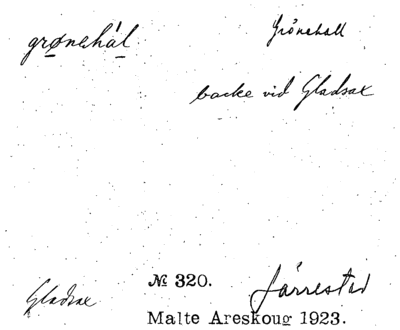 grønehál Grönehall
backe vid Gladsax
№ 320.
Gladsax Järrestad
Malte Areskoug 1923.